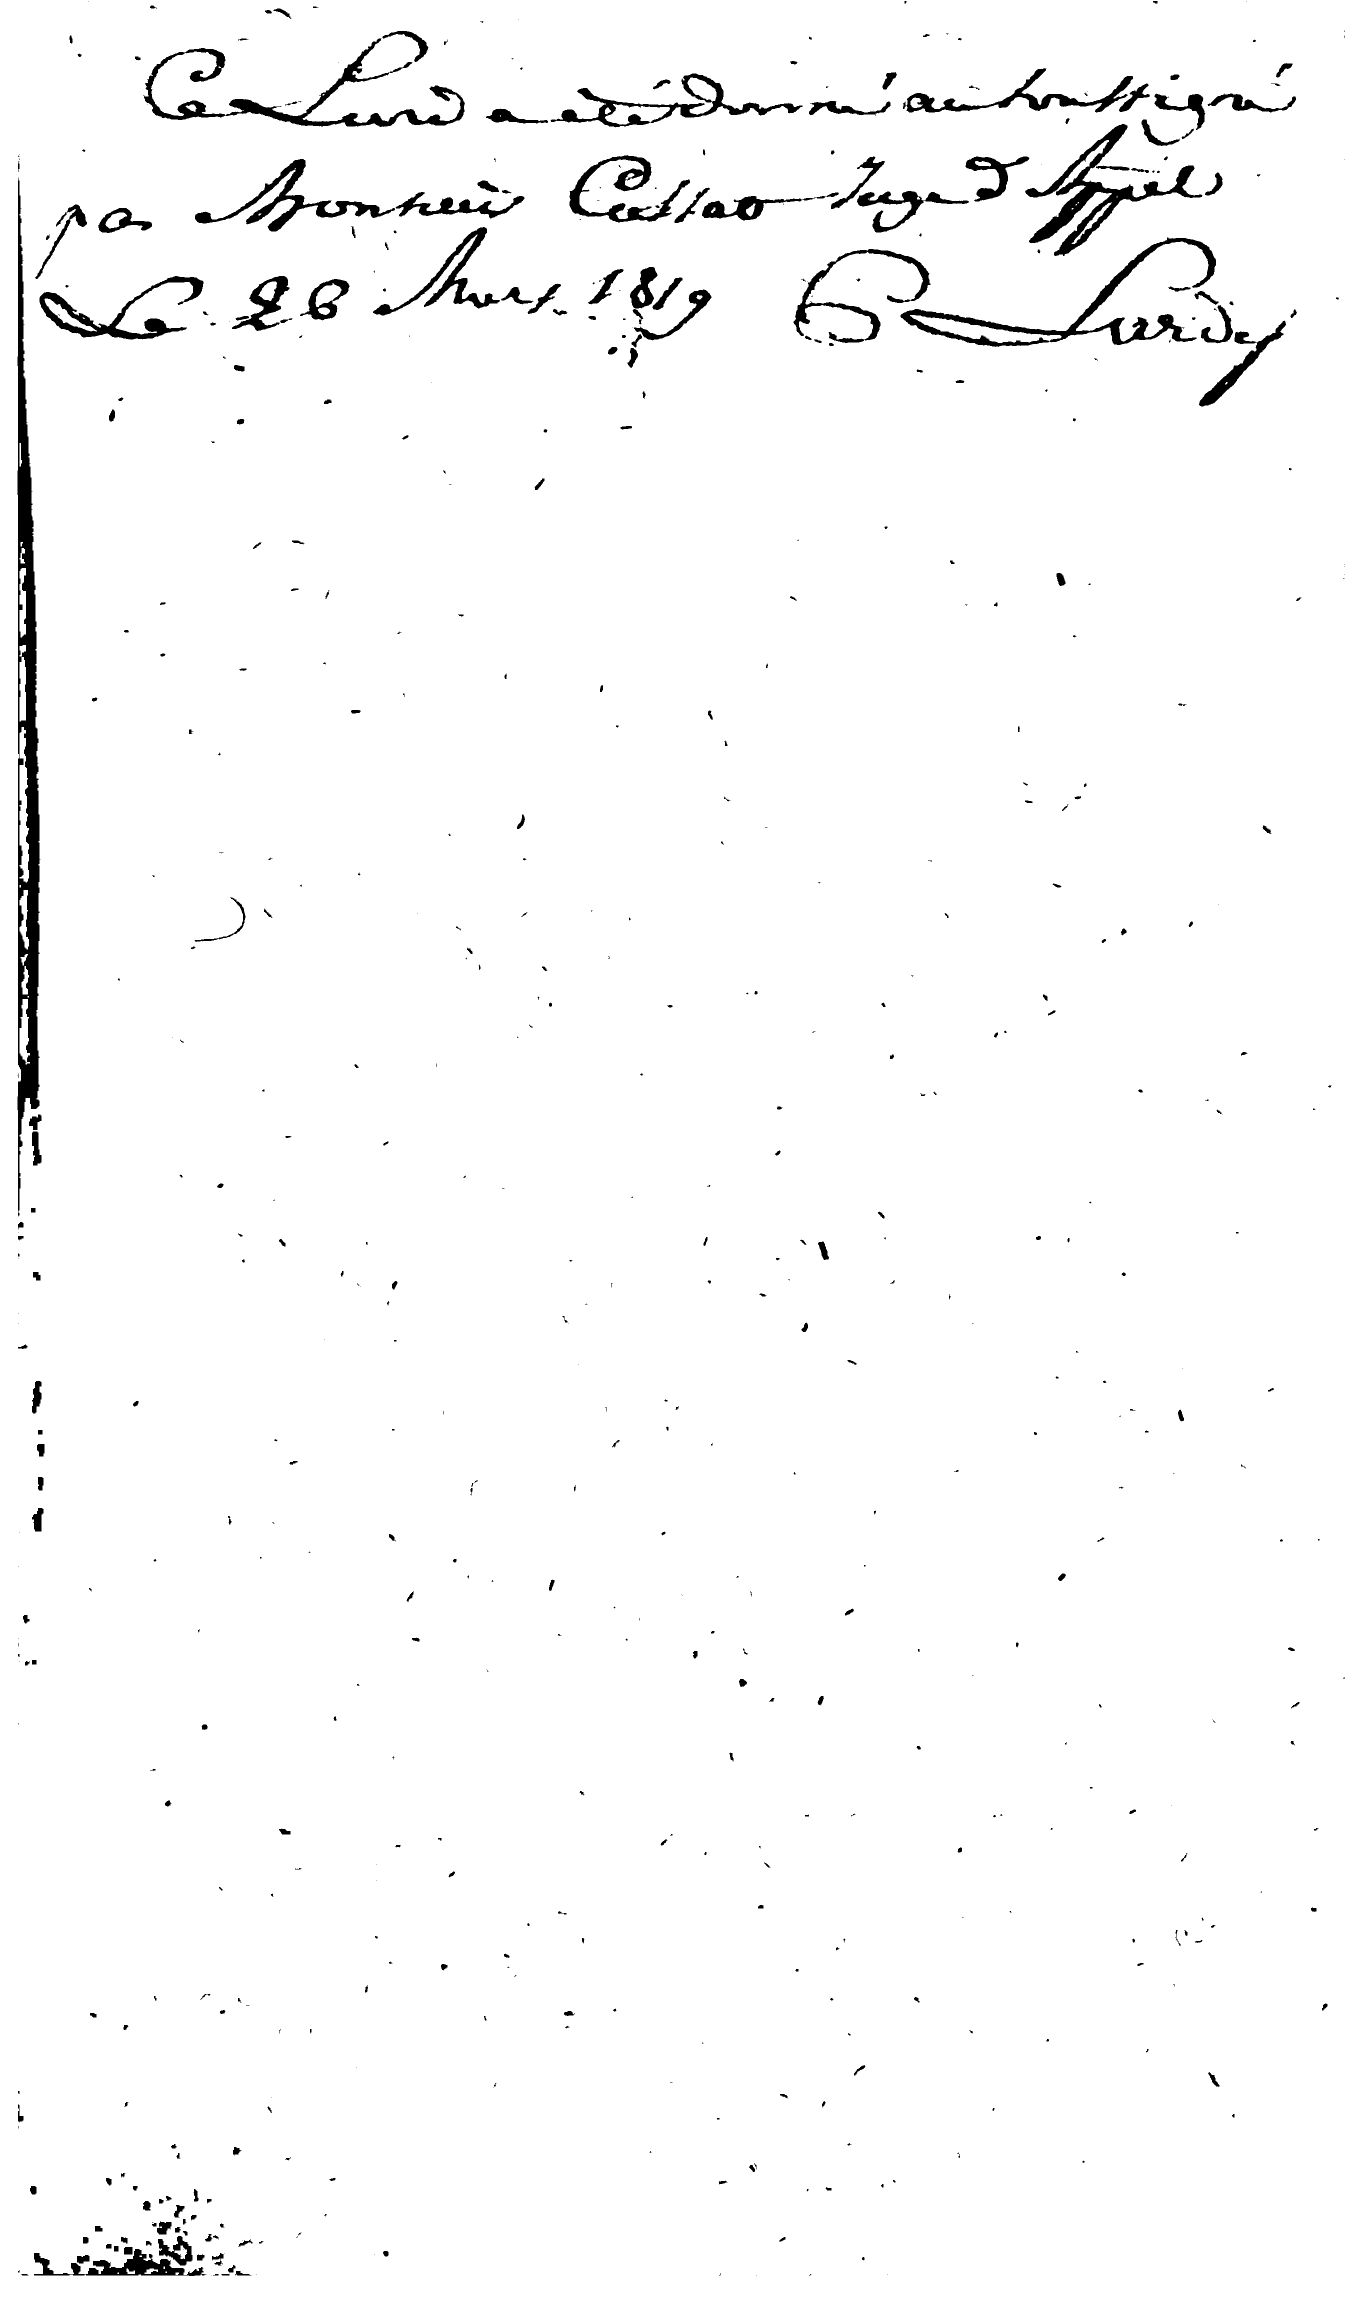 Ce Livre a été donné au soussigné
par Monsieur Cassao Juge d'Appel
Le 26 Mars 1819 Lurdy